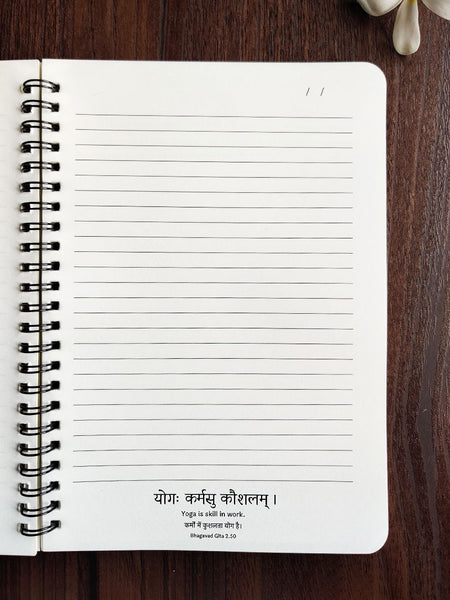 / /
योगः कर्मसु कौशलम् ।
Yoga is skill in work.
कर्मों में कुशलता योग है।
Bhagavad Gita 2.50